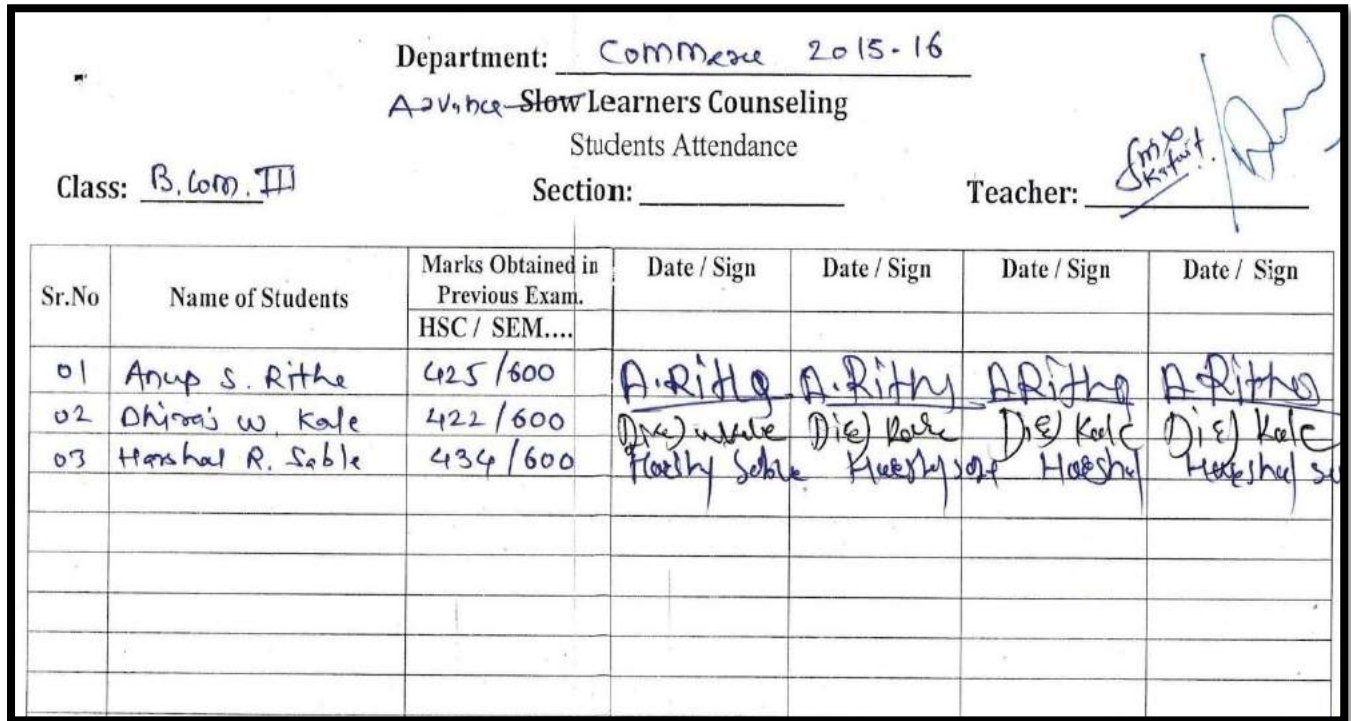 Department: Commerce 2015-16
Advance Slow Learners Counseling
Students Attendance
Class: B.Com. III Section: Teacher:
Sr.No Name of Students Marks Obtained in Previous Exam. Date / Sign Date / Sign Date / Sign Date / Sign
HSC / SEM....
01 Anup S. Rithe 425/600 A.Rithe A.Rithe ARithe A Rithe
02 W. Kale 422/600 Kale Kale Kale
03 Harshal R. Sable 434/600 Sable